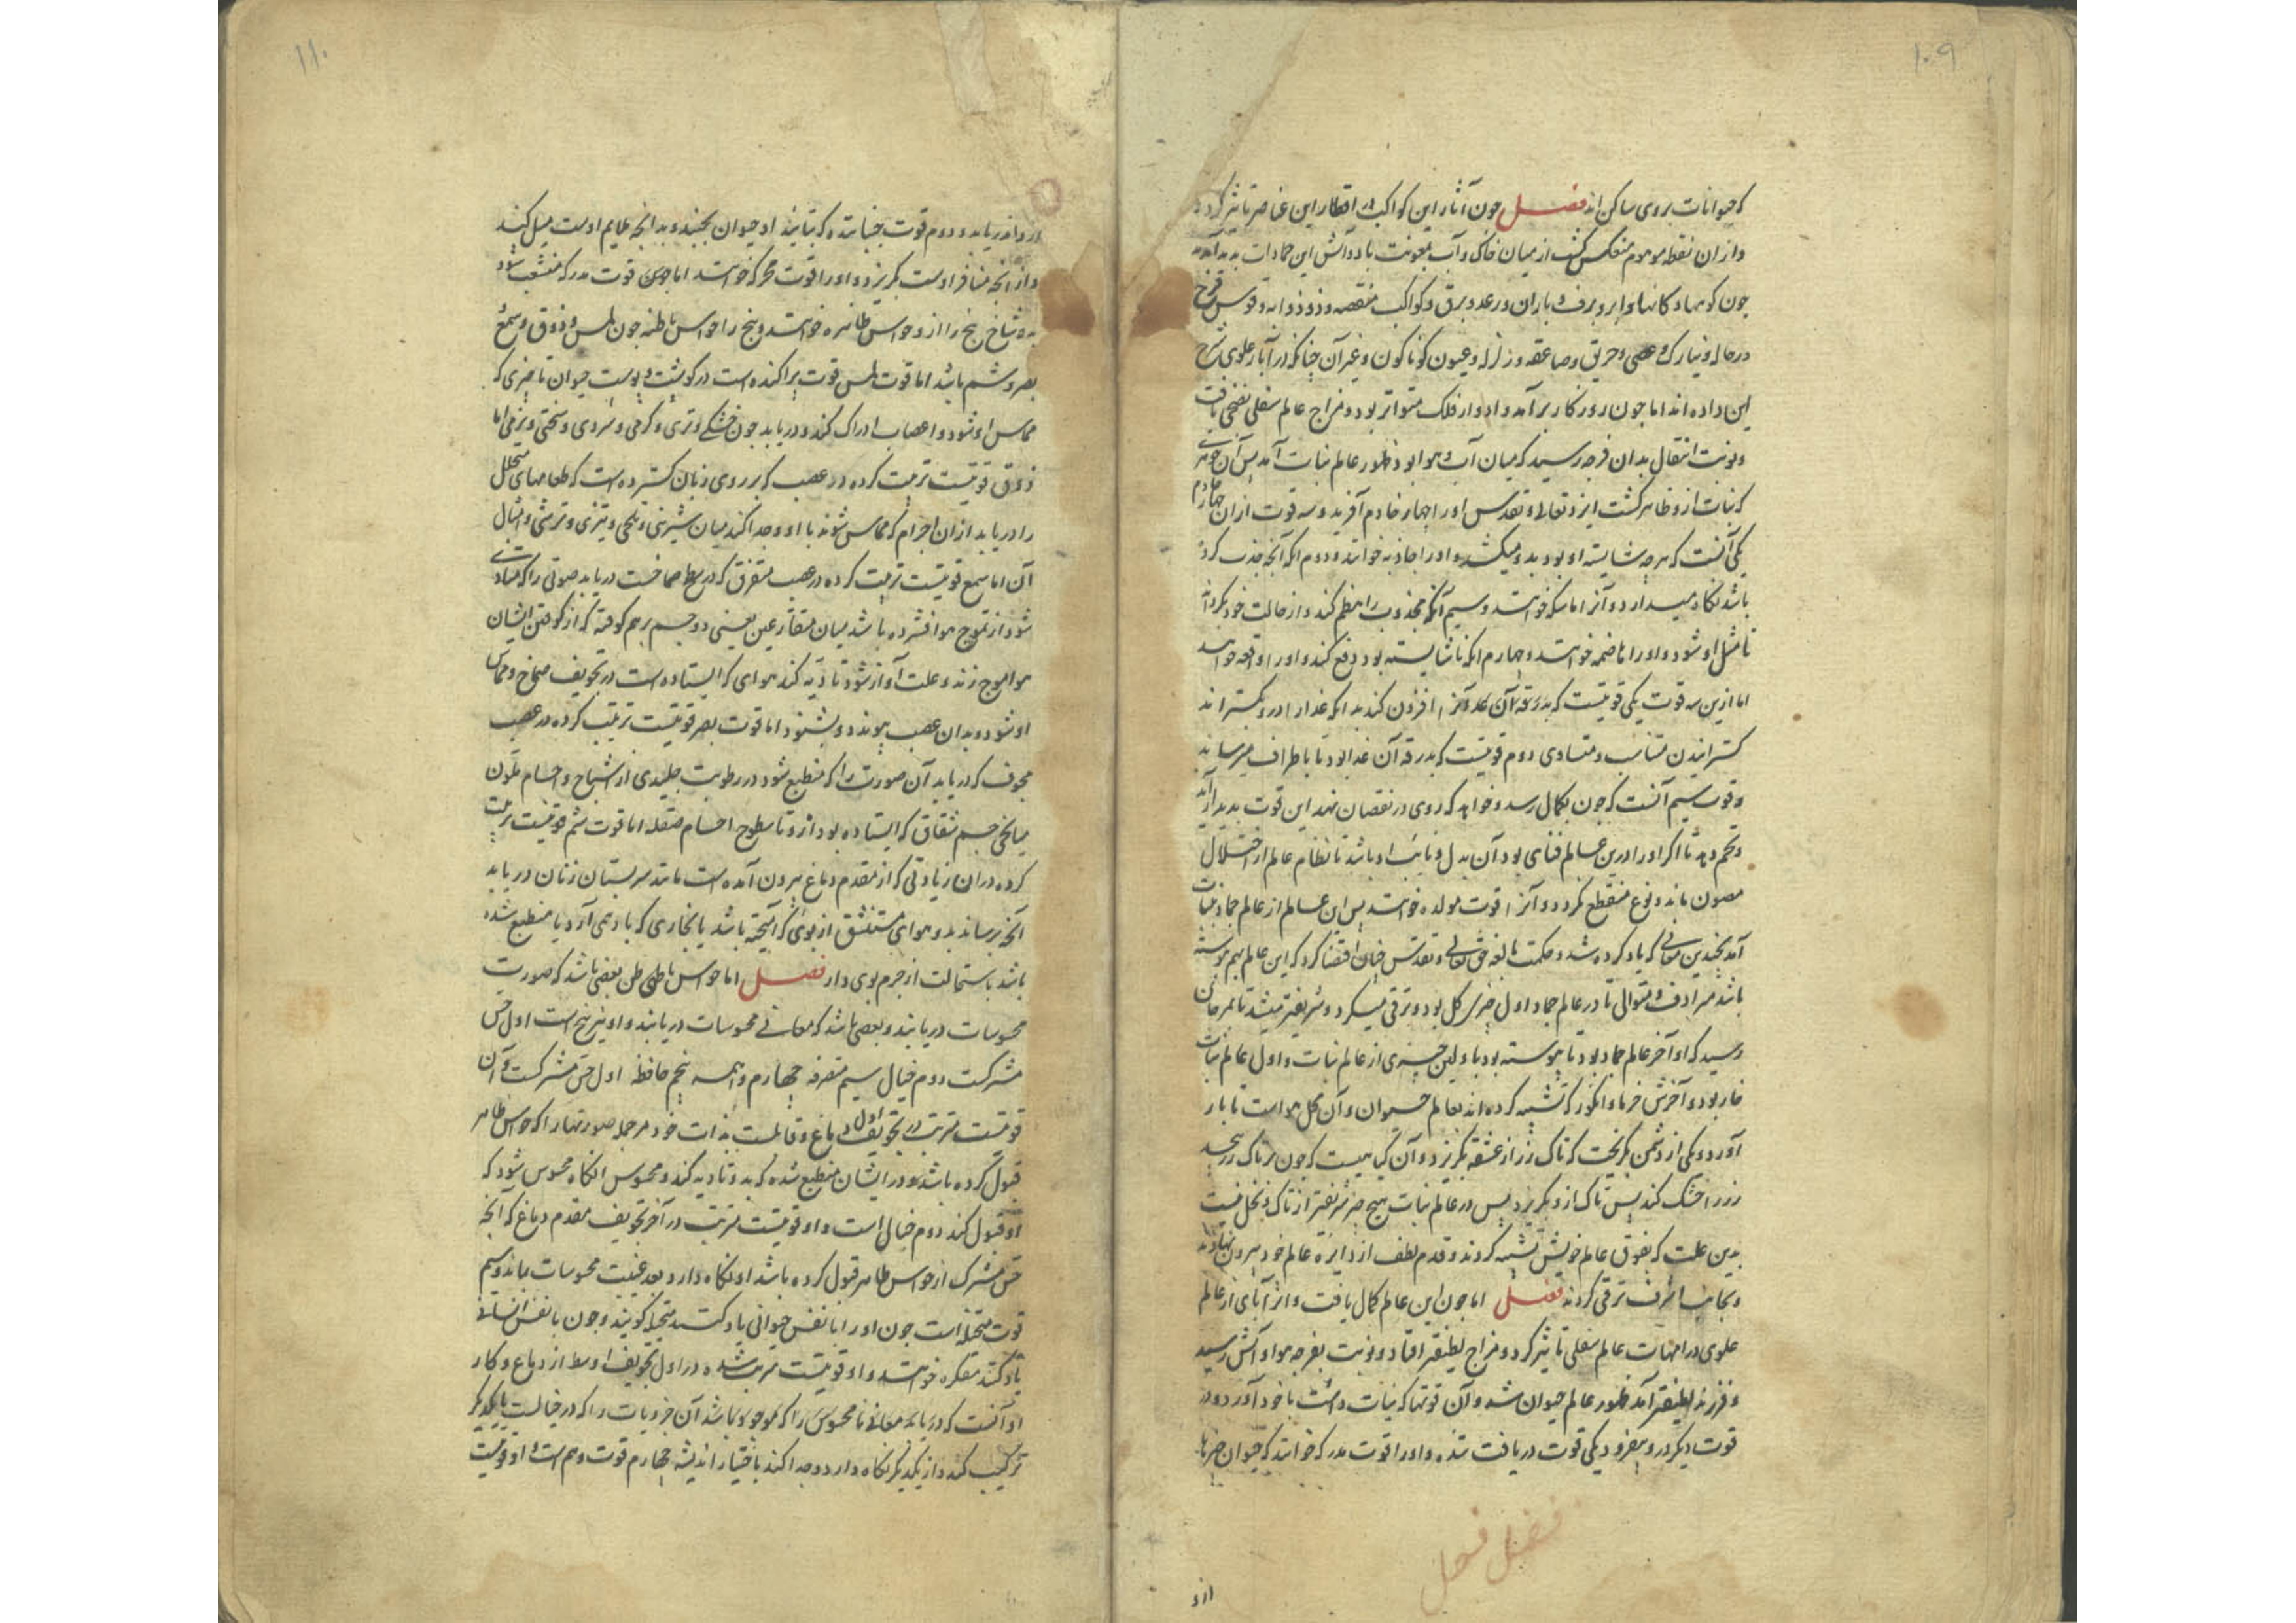 ۱۰۹
که حیوانات بروی ساکن اند فصل چون آثار این کواکب در اقطار این عناصر تاثیر کرد
و از ان نقطه موهوم منعکس گشت از میان خاک و آب بمعونت باد و آتش این جمادات پدید آمدند
چون کوهها و کانها و ابر و برف و باران و رعد و برق و کواکب منقضه و ذو ذوابه و قوس قزح
در هاله و نیازک و عصی و حریق و صاعقه و زلزله و عیون کوناکون و غیر آن چنانکه در آثار علوی شرح
این داده اند اما چون روزکار بر آمد و ادوار فلک متواتر بود و مزاج عالم سفلی نضجی یافت
و نوبت انتقال بدان فرجه رسید که میان آب و هوا بود ظهور عالم نبات آمد پس آن جوهری
که نبات از و ظاهر کشت ایزد تعالی و تقدس اورا چهار خادم آفرید و سه قوت ازان چهار خادم
یکی آنست که هرچه شایسته او بود بدو میکشد و اورا جاذبه خوانند و دوم انکه آنچه جذب کرده
باشد نکاه میدارد و آنرا ماسکه خوانند و سیم آنکه مجذوب را هضم کند و از حالت خود بکرداند
تا مثل او شود و اورا هاضمه خوانند و چهارم انکه ناشایسته بود دفع کند و اورا دافعه خوانند
اما ازین سه قوت یکی قوتیست که بدرقه آن غذا او را افزون کند بدانکه غذا را درو بکستراند
کسترانیدن متناسب و متساوی دوم قوتیست که بدرقه آن غذا بود تا باطراف میرساند
و قوت سیم آنست که چون بکمال رسد و خواهد که روی در نقصان نهد این قوت پدیدار آید
و تخم دهد تا اکر اورا درین عالم فنای بود آن بدل و نایب او باشد تا نظام عالم از اختلال
مصون ماند و نوع منقطع نکردد و آنرا قوت مولده خوانند پس این عالم از عالم جماد زیادت
آمد بچندین معانی که یاد کرده شد و حکمت بالغه حق تعالی و تقدس چنان اقتضا کرد که این عالم بهم پیوسته
باشد مترادف و متوالی تا در عالم جماد اول چیزی کل بود و ترقی میکرد و شریفتر میشد تا بمرجان
رسید که او آخر عالم جماد بود تا پیوسته بود باولین چیزی از عالم نبات و اول عالم نبات
خار بود و آخرش خرما و انکور که تشبیه کرده اند بعالم حیوان و آن نحل هواست تا بار
آورد و یکی از دشمن بکریخت که تاک رز از عشقه بکریزد و آن کیاهیست که چون بر تاک رز پیچد
رز را خشک کند پس تاک از و بکریزد پس در عالم نبات هیچ چیز شریفتر از تاک و نخل نیست
بدین علت که بفوق عالم خویش تشبه کردند و قدم لطف از دایره عالم خود بیرون نهادند
و بجانب اشرف ترقی کردند فصل اما چون این عالم کمال یافت و اثر آبای از عالم
علوی در امهات عالم سفلی تاثیر کرد و مزاج لطیفتر افتاد و نوبت بفرجه هوا و آتش رسید
و فرزند لطیفتر آمد ظهور عالم حیوان شد و آن قوتها که نبات داشت با خود آورد و دو
قوت دیکر درو بیفزود یکی قوت دریافت شده و اورا قوت مدرکه خوانند که حیوان چیزها
فصل فصل
ازو
۱۱۰
ازو اندر یابد و دوم قوت جنباننده که بتایید او حیوان بجنبد و بدانچه ملایم اوست میل کند
و از انچه منافر اوست بکریزد و اورا قوت محرکه خوانند اما قوت مدرکه منشعب شود
بده شاخ پنج را از و حواس ظاهره خوانند و پنج را حواس باطنه چون لمس و ذوق و سمع
بصر و شم باشد اما قوت لمس قوت پراکنده است در کوشت و پوست حیوان تا چیزی که
مماس او شود و اعصاب ادراک کند و دریابد چون خشکی و تری و کرمی و سردی و سختی و نرمی اما
ذوق قوتیست ترتیب کرده در عصب که بر روی زبان کسترده است که طعامهای متحلل
را دریابد از ان اجرام که مماس شوند با او و جدا کند میان شیرینی و تلخی و تیزی و ترشی و امثال
آن اما سمع قوتیست ترتیب کرده در عصب متفرق که در سطح صماخست دریابد صوتی را که متادی
شود از تموج هوا افشرده باشد میان متقارعین یعنی دو جسم برهم کوفته که از کوفتن ایشان
هوا موج زند و علت آواز شود تا تادیه کند هوای که ایستاده است در تجویف صماخ و مماس
او شود و بدان عصب پیوندد و بشنود اما قوت بصر قوتیست ترتیب کرده در عصب
مجوف که دریابد آن صورت را که منطبع شود در رطوبت جلیدی از اشباح و اجسام ملون
میانجی جسم شفاف که ایستاده بود ازو تا سطوح اجسام صقیله اما قوت شم قوتیست ترتیب
کرده دران زیادتی که از مقدم دماغ بیرون آمده است مانند سر پستان زنان دریابد
آنچه برساند بدو هوای مستنشق از بوی که آمیخته باشد با بخاری که باد همی آرد یا منطبع شده
باشد باستحالت از جرم بوی دار فصل اما حواس باطن بعضی باشد که صورت
محسوسات دریابند و بعضی باشد که معانی محسوسات دریابند و او نیز پنج است اول حس
مشترکست دوم خیال سیم متصرفه چهارم واهمه پنجم حافظه اول حس مشترکست و آن
قوتیست مرتب در تجویف اول دماغ و قابلست بذات خود مر جمله صورتها را که حواس ظاهر
قبول کرده باشد و در ایشان منطبع شده که بدو تادیه کند و محسوس آنکاه محسوس شود که
او قبول کند دوم خیال است و او قوتیست مرتب در آخر تجویف مقدم دماغ که آنچه
حس مشترک از حواس ظاهر قبول کرده باشد او نکاه دارد بعد غیبت محسوسات بماند و سیم
قوت متخیله است چون اورا با نفس حیوانی یاد کنند متخیله کویند و چون با نفس انسانی
یاد کنند متفکره خوانند و او قوتیست مرتب شده در اول تجویف اوسط از دماغ و کار
او آنست که دریابد معانی نامحسوس را که موجود باشد آن جزویات را که در خیالست با یکدیکر
ترکیب کند و از یکدیکر نکاه دارد و جدا کند باختیار اندیشه چهارم قوت وهم است و او قوتیست